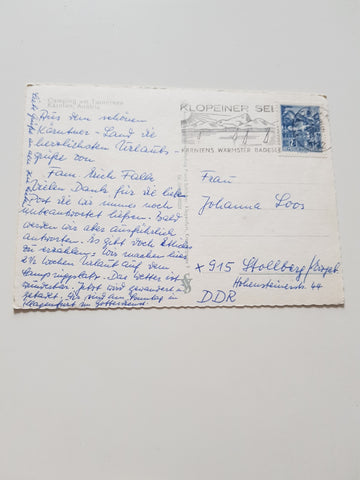 Camping am Turnersee
Kärnten, Austria
Aus dem schönen
Kärntner-Land die
herzlichsten Urlaubs-
grüße von
Fam. Falk
Vielen Dank für die lieben
Post die wir immer noch
unbeantwortet ließen. Bald
werden wir aber ausführlich
antworten. Es gibt doch
zu erzählen. Wir machen hier
2½ Wochen Urlaub auf dem
Campingplatz. Das Wetter ist
wunderbar. Jetzt wird gewandert u.
gebadet. Wir sind am Sonntag in
Klagenfurt im Gottesdienst.
KLOPEINER SEE
KÄRNTENS WÄRMSTER BADESEE
Frau
Johanna Loos
x 915 Stollberg/Erzgeb.
Hohensteinerstr. 44
DDR